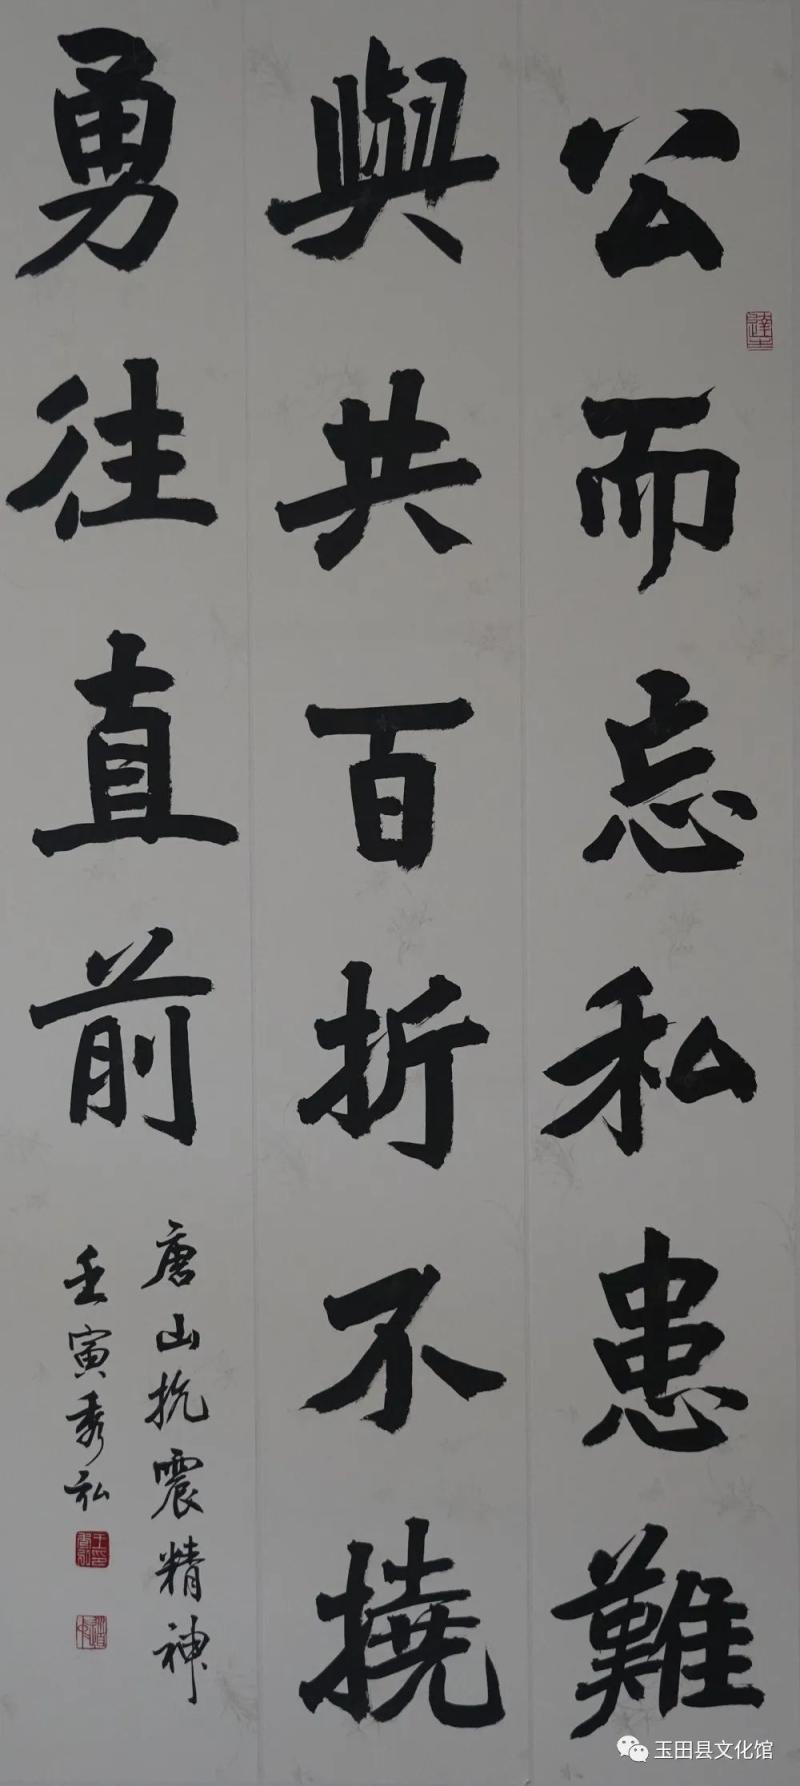 公而忘私患難
與共百折不撓
勇往直前
唐山抗震精神
壬寅秀弘
玉田县文化馆